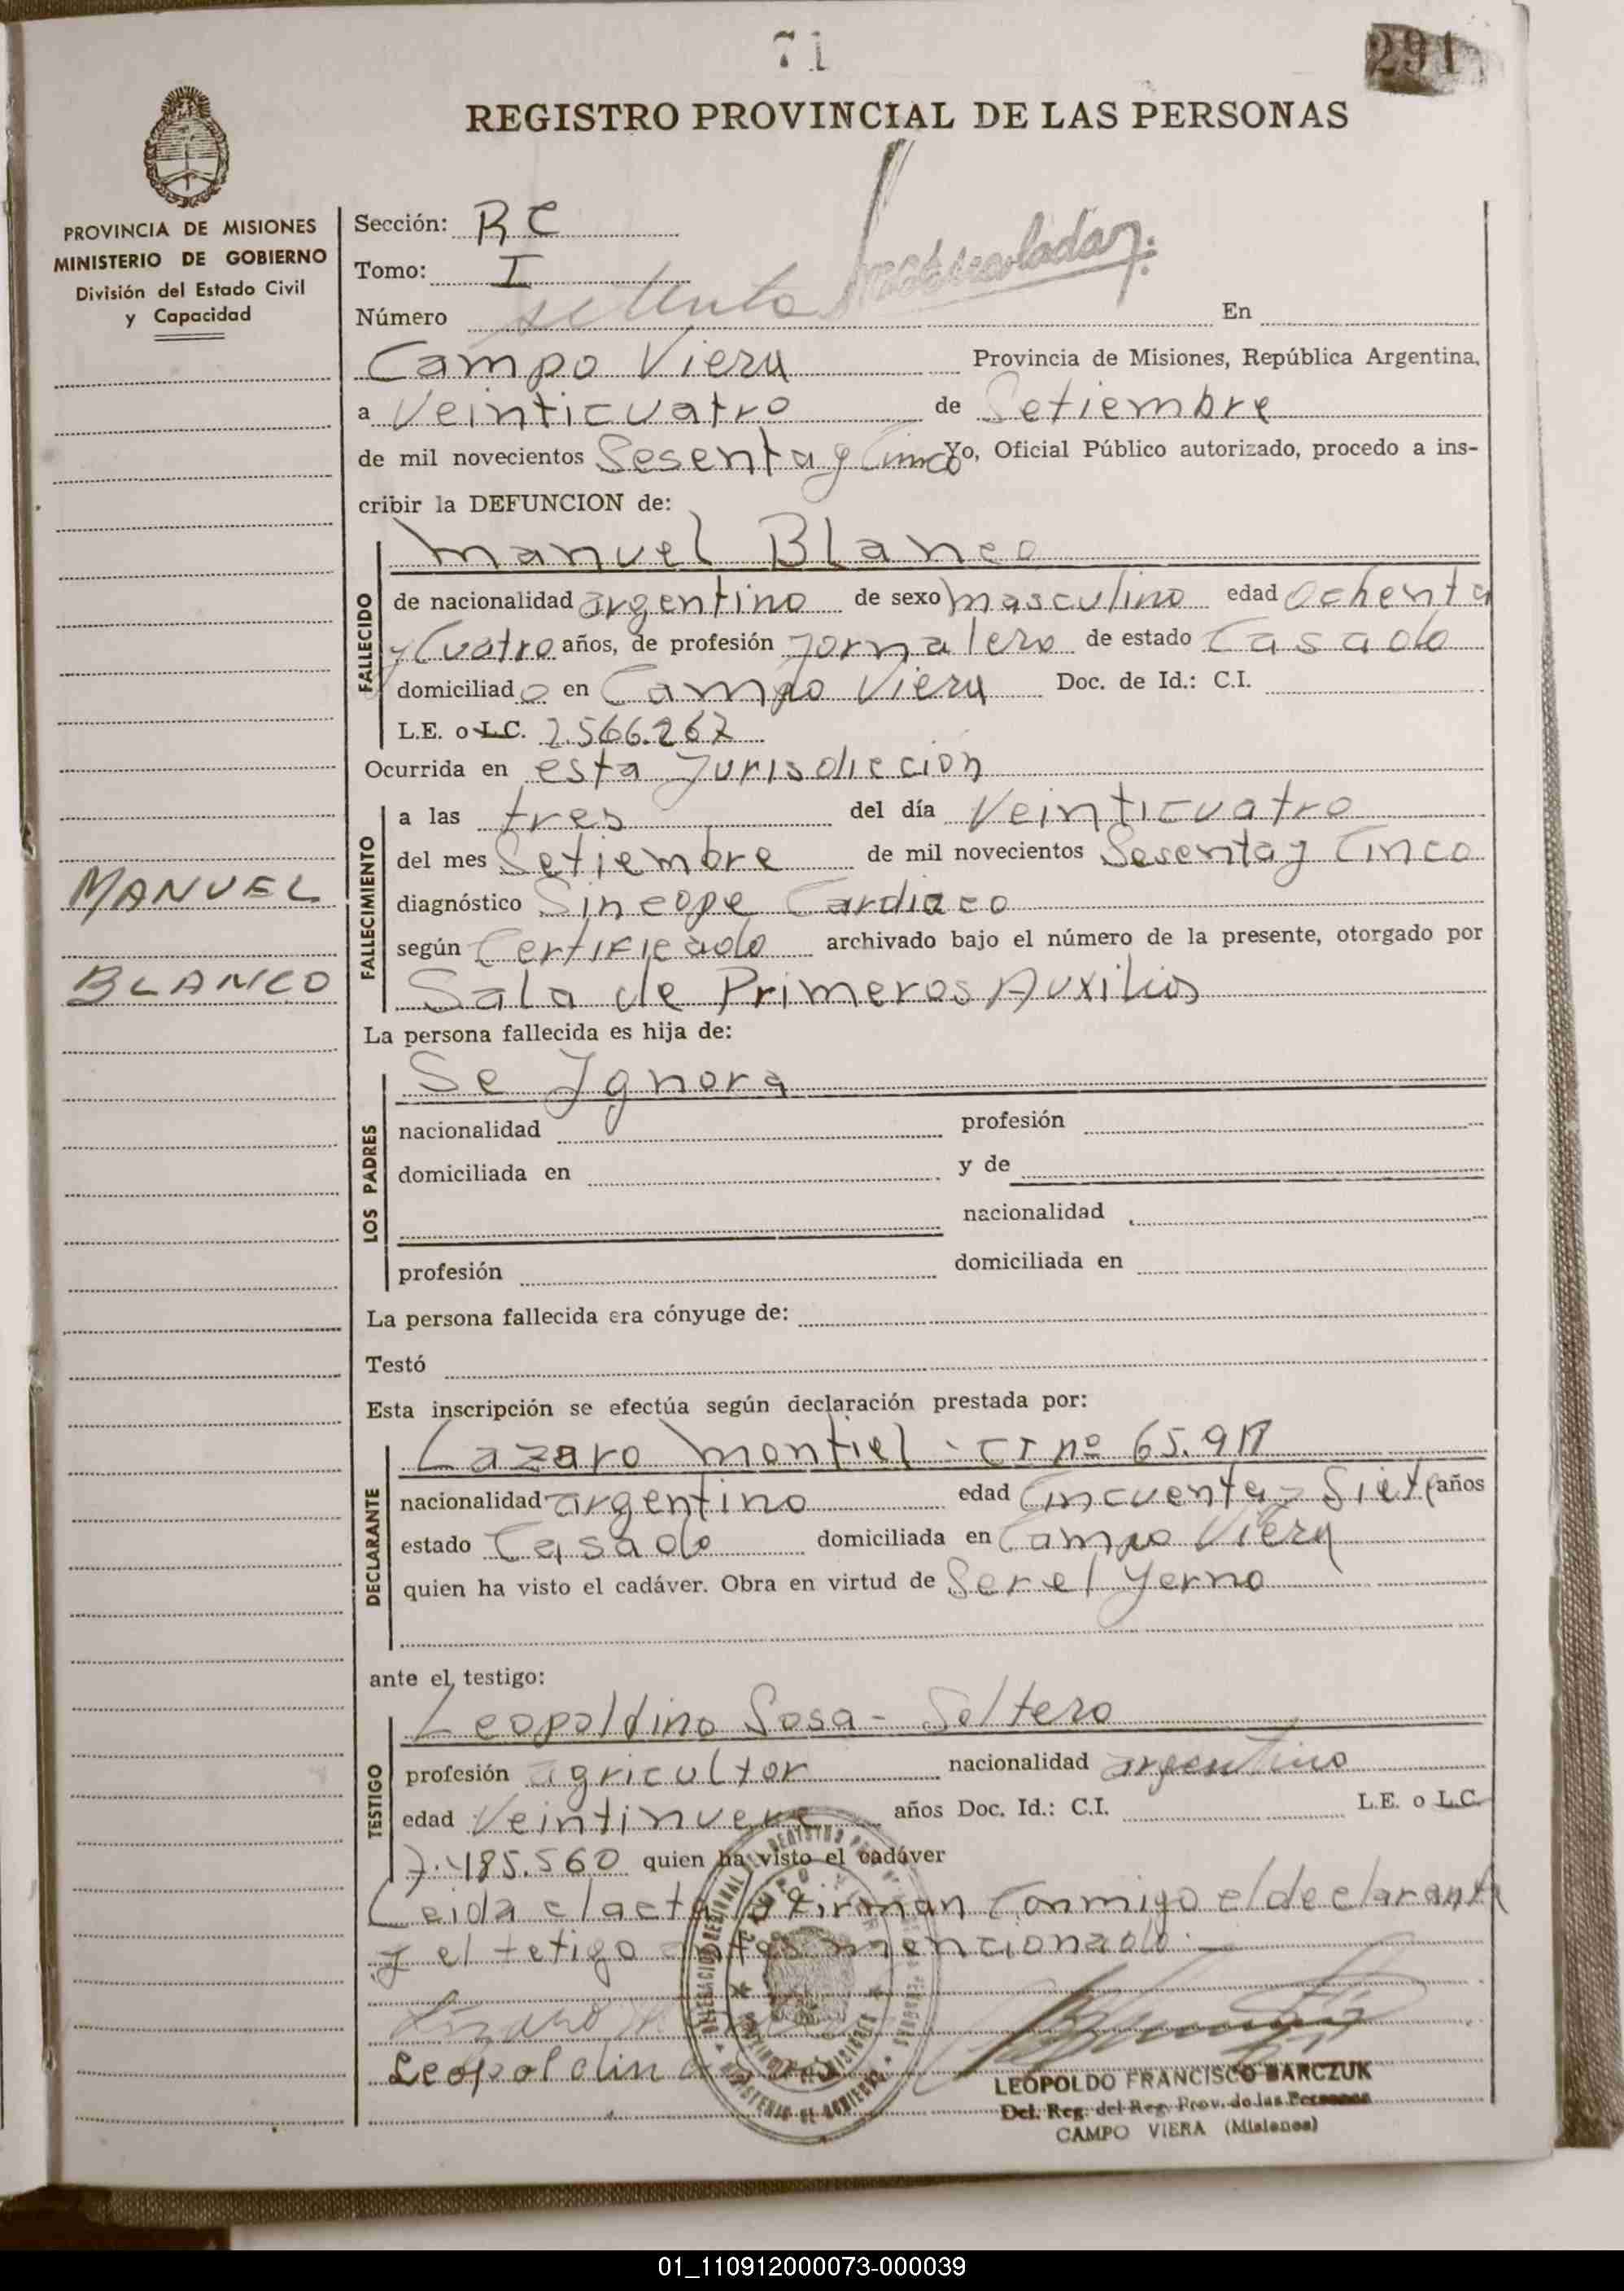 71
291
REGISTRO PROVINCIAL DE LAS PERSONAS
PROVINCIA DE MISIONES
MINISTERIO DE GOBIERNO
División del Estado Civil
y Capacidad
Sección: RC
Tomo: I
Número setenta En
Campo Viera Provincia de Misiones, República Argentina,
a Veinticuatro de Setiembre
de mil novecientos Sesenta y Cinco Yo, Oficial Público autorizado, procedo a ins-
cribir la DEFUNCION de:
FALLECIDO
Manuel Blanco
de nacionalidad argentino de sexo masculino edad ochenta
y Cuatro años, de profesión Jornalero de estado Casado
domiciliado en Campo Viera Doc. de Id.: C.I.
L.E. o L.C. 2.566.267
Ocurrida en esta Jurisdiccion
FALLECIMIENTO
a las tres del día Veinticuatro
del mes Setiembre de mil novecientos Sesenta y Cinco
diagnóstico Sincope Cardiaco
según Certificado archivado bajo el número de la presente, otorgado por
Sala de Primeros Auxilios
MANUEL
BLANCO
La persona fallecida es hija de:
LOS PADRES
Se Ignora
nacionalidad profesión
domiciliada en y de
nacionalidad
profesión domiciliada en
La persona fallecida era cónyuge de:
Testó
Esta inscripción se efectúa según declaración prestada por:
DECLARANTE
Lazaro Montiel - CI nº
nacionalidad argentino edad Cincuenta y Siete años
estado Casado domiciliada en Campo Viera
quien ha visto el cadáver. Obra en virtud de Ser el Yerno
ante el testigo:
TESTIGO
Leopoldino Sosa - Soltero
profesión agricultor nacionalidad argentino
edad Veintinueve años Doc. Id.: C.I. L.E. o L.C.
7.485.560 quien ha visto el cadáver
Leida el acta la firman conmigo el declarante
y el tetigo antes mencionado.
Lazaro
Leopoldino
LEOPOLDO FRANCISCO BARCZUK
Del. Reg. del Reg. Prov. de las Personas
CAMPO VIERA (Misiones)
01_110912000073-000039